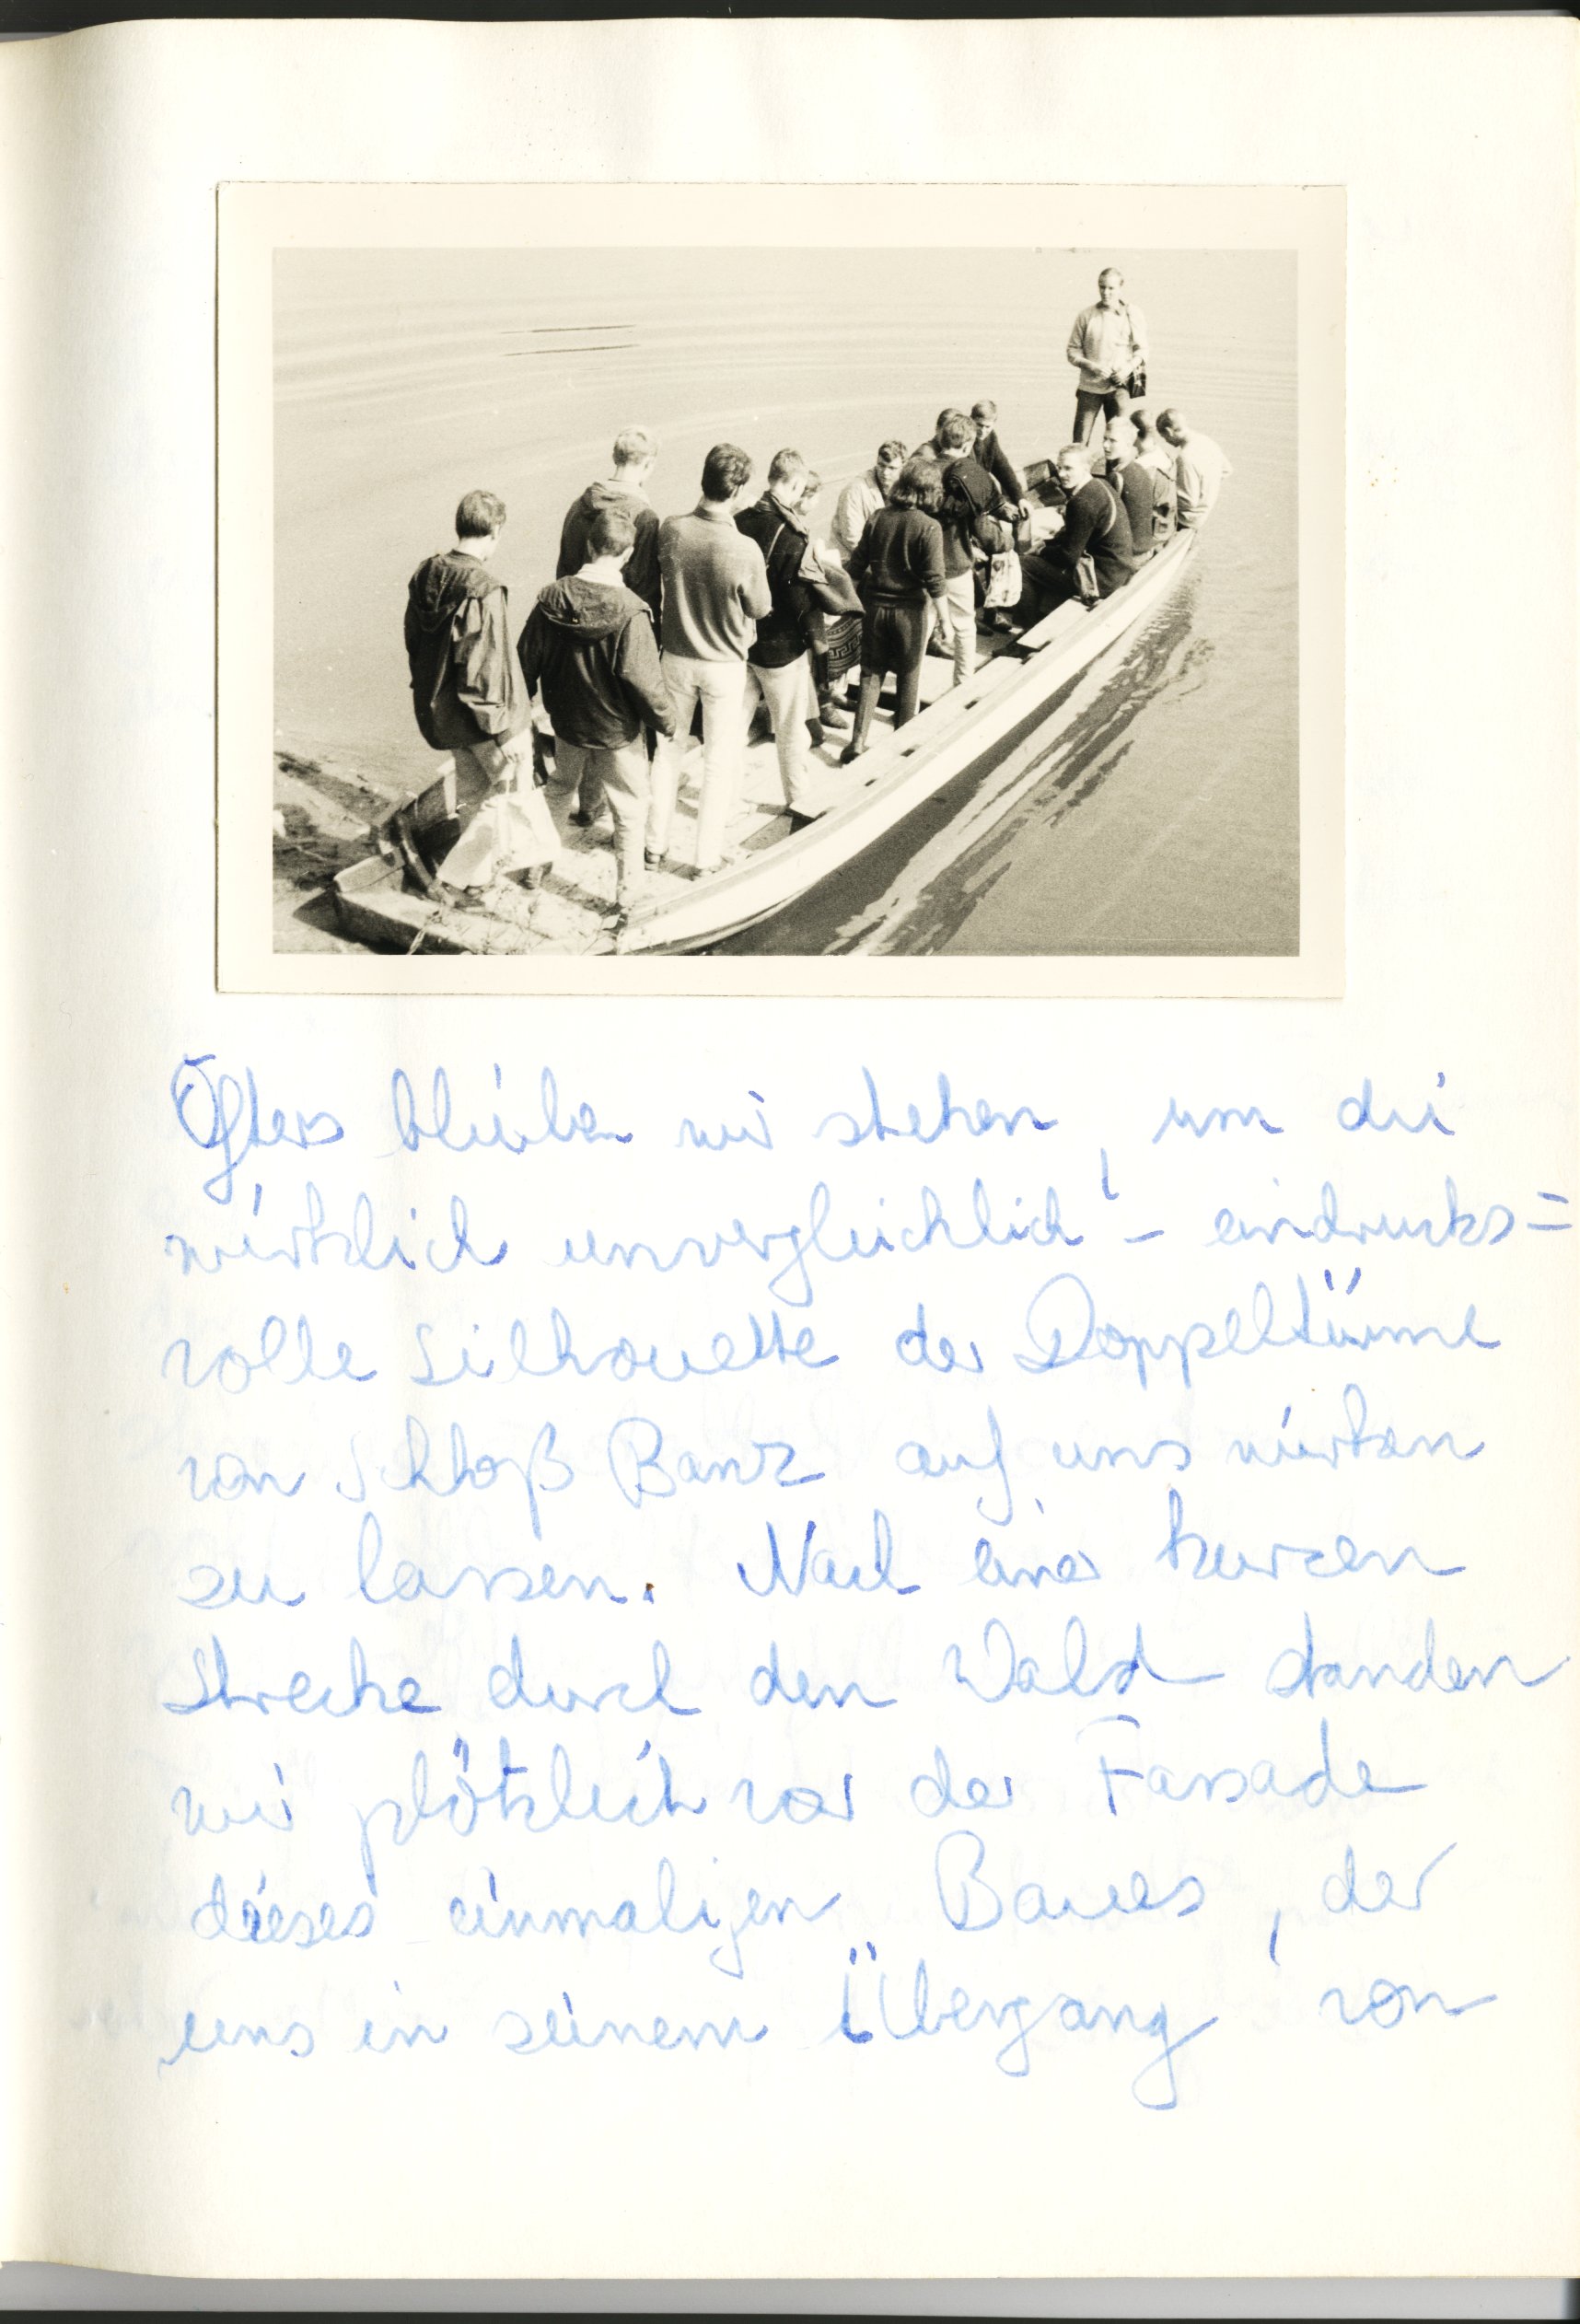 Öfters blieben wir stehen, um die
wirklich unvergleichlich - eindrucks=
volle Silhouette der Doppeltürme
von Schloß Banz auf uns wirken
zu lassen. Nach einer kurzen
Strecke durch den Wald standen
wir plötzlich vor der Fassade
dieses einmaligen Baues, der
uns in seinem Übergang von